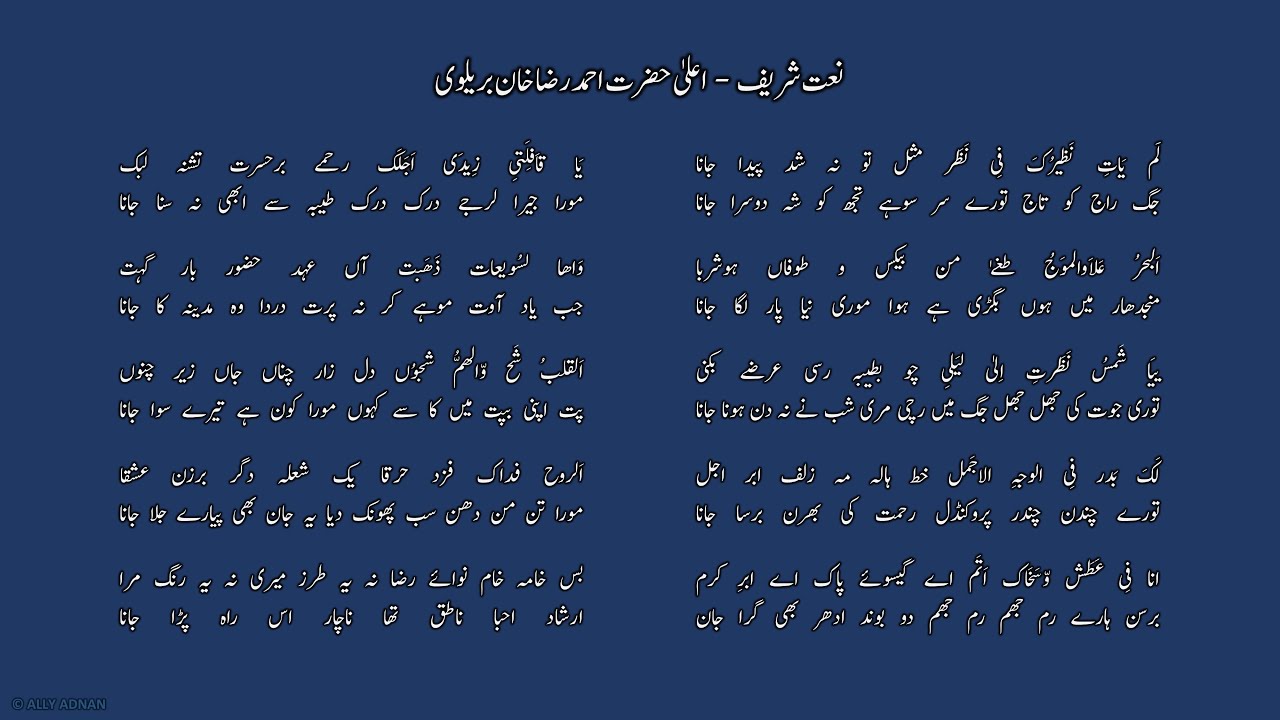 نعت شریف – اعلیٰ حضرت احمد رضا خان بریلوی
لَم یَاتِ نَظیرُکَ فِی نَظَر مثل تو نہ شد پیدا جانا
جگ راج کو تاج تورے سر سوہے تجھ کو شہ دوسرا جانا
اَلبحرُ عَلاَوالموَجُ طغےٰ من بیکس و طوفاں ہوشربا
منجدھار میں ہوں بگڑی ہے ہوا موری نیا پار لگا جانا
یَا شَمسُ نَظَرتِ اِلیٰ لیَلیِ چو بطیبہ رسی عرضے بکنی
توری جوت کی جھل جھل جگ میں رچی مری شب نے نہ دن ہونا جانا
لَکَ بَدر فِی الوجہِ الاجَمل خط ہالہ مہ زلف ابر اجل
تورے چندن چندر پروکنڈل رحمت کی بھرن برسا جانا
انا فِی عَطَش وّسَخَاک اَتَم اے گیسوئے پاک اے ابرِ کرم
برسن ہارے رم جھم رم جھم دو بوند ادھر بھی گرا جان
یَا قاَفِلَتیِ زِیدَی اَجَلَک رحمے برحسرت تشنہ لبک
مورا جیرا لرجے درک درک طیبہ سے ابھی نہ سنا جانا
وَاھا لسُویعات ذَھَبت آں عہد حضور بار گہت
جب یاد آوت موہے کر نہ پرت دردا وہ مدینہ کا جانا
اَلقلبُ شَح وّالھمُّ شجوُں دل زار چناں جاں زیر چنوں
پت اپنی بپت میں کا سے کہوں مورا کون ہے تیرے سوا جانا
اَلروح فداک فزد حرقا یک شعلہ دگر برزن عشقا
مورا تن من دھن سب پھونک دیا یہ جان بھی پیارے جلا جانا
بس خامہ خام نوائے رضا نہ یہ طرز میری نہ یہ رنگ مرا
ارشاد احبا ناطق تھا ناچار اس راہ پڑا جانا
© ALLY ADNAN